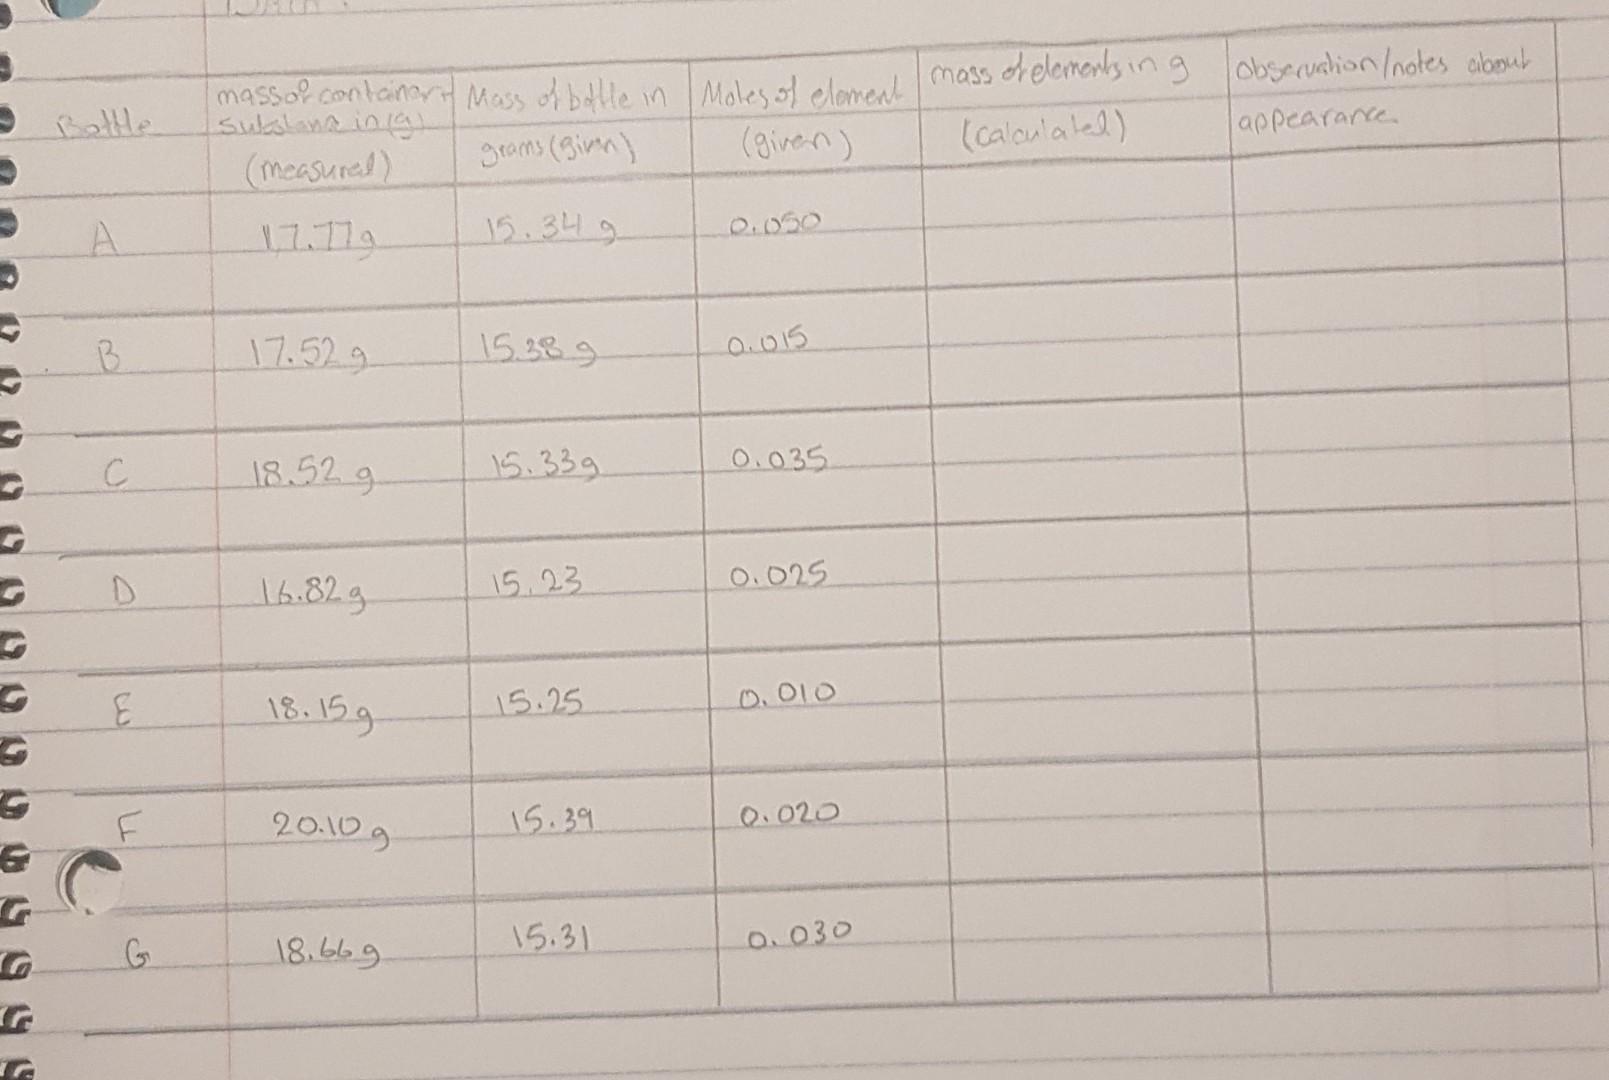 DATA:
Bottle
mass of container +
substance in (g)
(measured)
Mass of bottle in
grams (given)
Moles of element
(given)
mass of elements in g
(calculated)
Observation/notes about
appearance.
A 17.77g 15.34 g 0.050
B 17.52 g 15.38 g 0.015
C 18.52 g 15.33g 0.035
D 16.82g 15.23 0.025
E 18.15g 15.25 0.010
F 20.10 g 15.39 0.020
G 18.66g 15.31 0.030